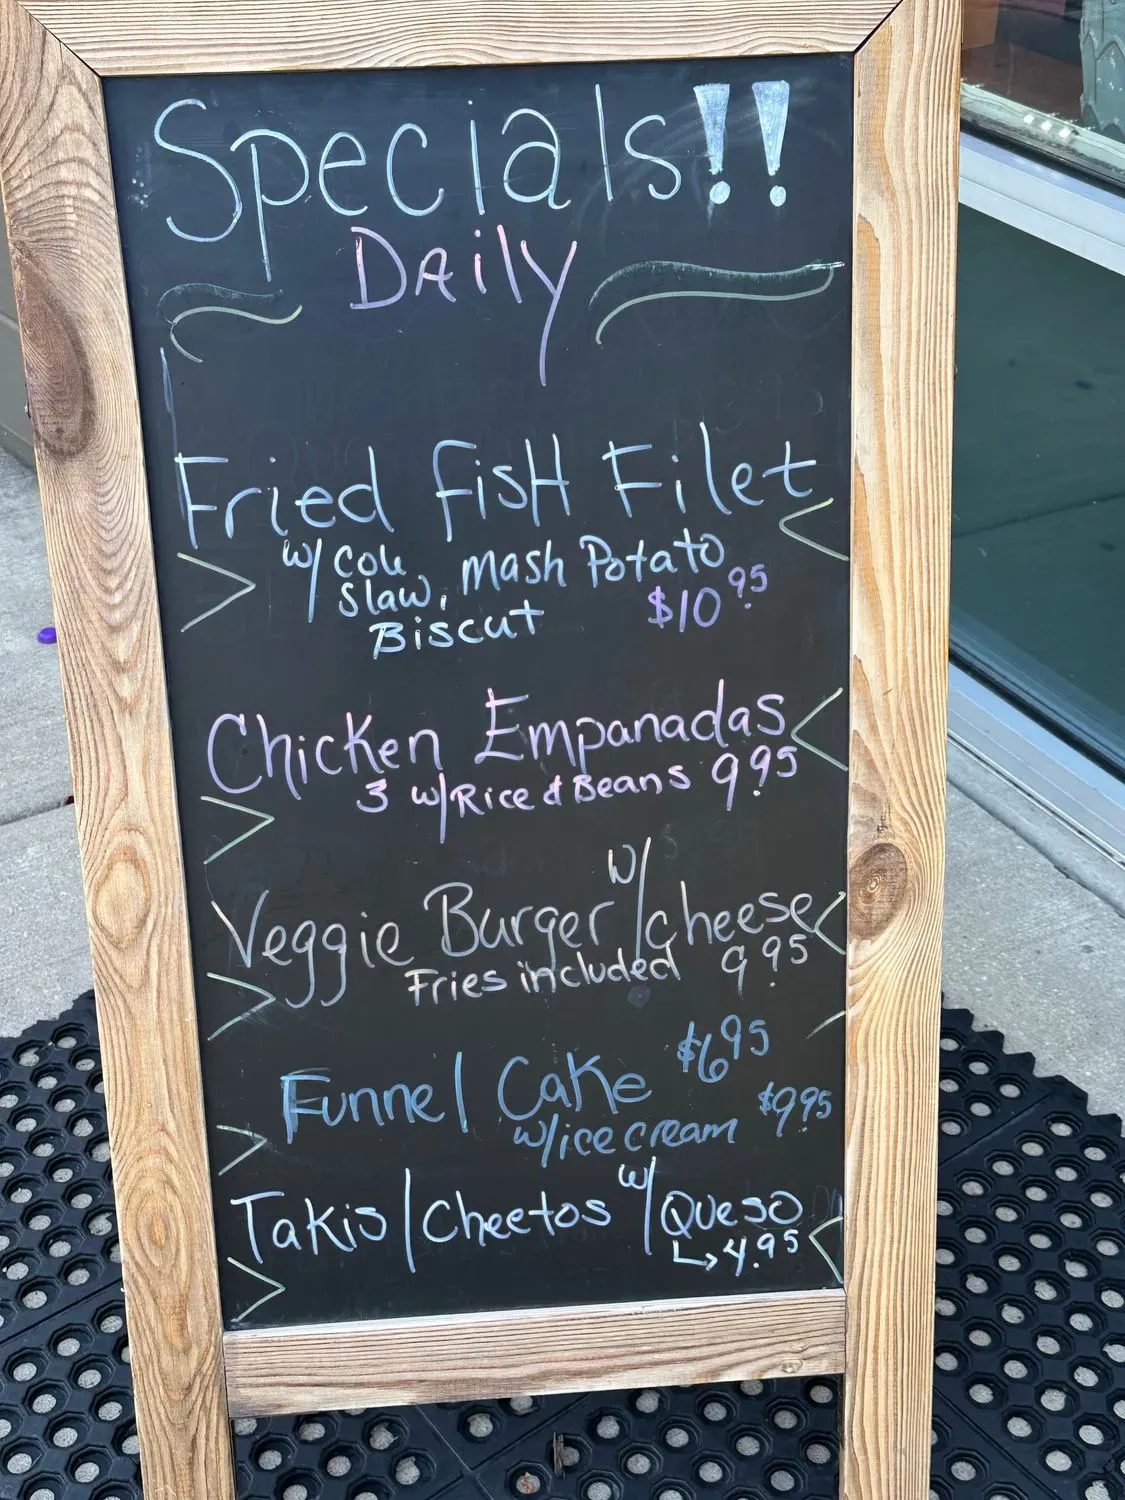 Specials!!
Daily
Fried Fish Filet
w/ Cole
Slaw, Mash Potato
Biscut $10 95
Chicken Empanadas
3 w/Rice & Beans 9.95
Veggie Burger w/ cheese
Fries included 9.95
Funnel Cake $6 95
w/ice cream $9.95
Takis/Cheetos w/ Queso
↳ 4.95